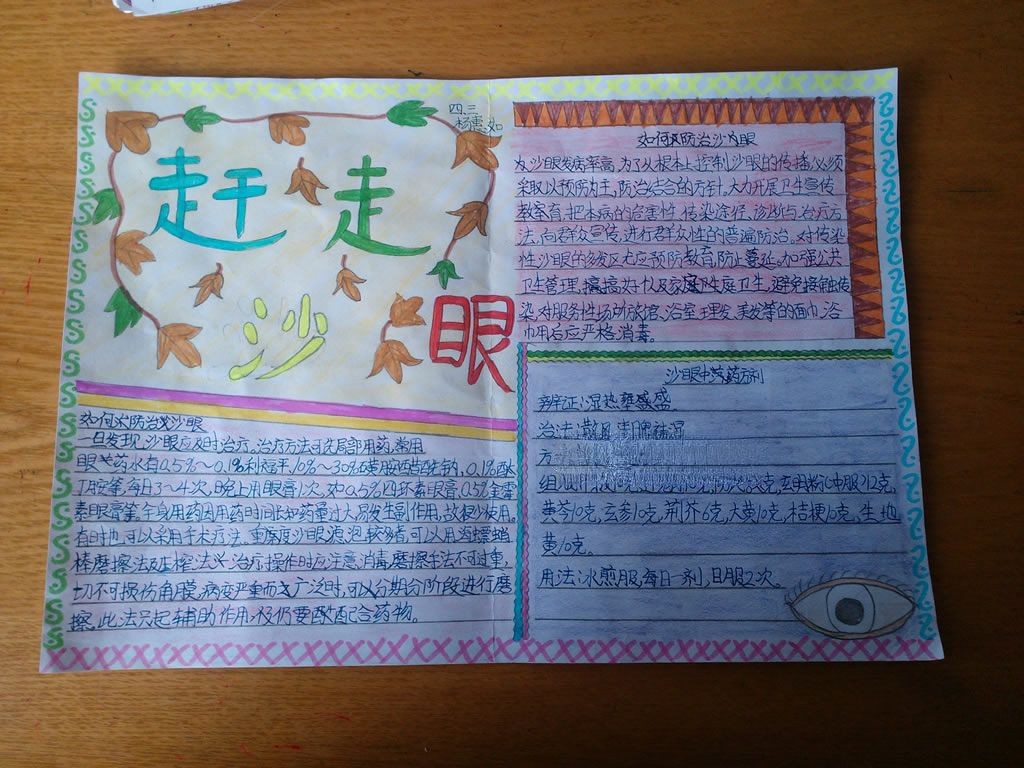 四.三
杨惠如
赶走
沙眼
如何防治沙眼
一旦发现沙眼应及时治疗,治疗方法首先局部用药,常用
眼药水有0.5%~0.1%利福平,10%~30%磺胺醋酰钠,0.1%酞
丁胺等,每日3~4次,晚上用眼膏1次,如0.5%四环素眼膏,0.5%金霉
素眼膏等,全身用药因用药时间长和药量过大易发生副作用,故很少使用。
有时也可以采用手术疗法,重度沙眼滤泡较多者,可以用海螵蛸
棒磨擦法及压榨法兴治疗,操作时应注意消毒,磨擦手法不可过重,
切不可损伤角膜,病变严重而又广泛时,可以分期分阶段进行磨
擦,此法只起辅助作用,仍要配合药物。
如何防治沙眼
沙眼发病率高,为了从根本上控制沙眼的传播,必须
采取以预防为主,防治结合的方针,大力开展卫生宣传
教育,把本病的危害性,传染途径,诊断与治疗方
法,向群众宣传,进行群众性的普遍防治。对传染
性沙眼的多发区尤应预防教育,防止蔓延。加强公共
卫生管理,搞好个人及家庭卫生,避免接触传
染,对服务性场所旅馆,浴室,理发,美发等的面巾,浴
巾用后应严格消毒。
沙眼中药方剂
辨证:湿热壅盛
治法:散风清脾祛湿
方
玄明粉(冲服)12克,
黄芩10克,玄参10克,荆芥6克,大黄10克,桔梗10克,生地
黄10克。
用法:水煎服,每日一剂,日服2次。